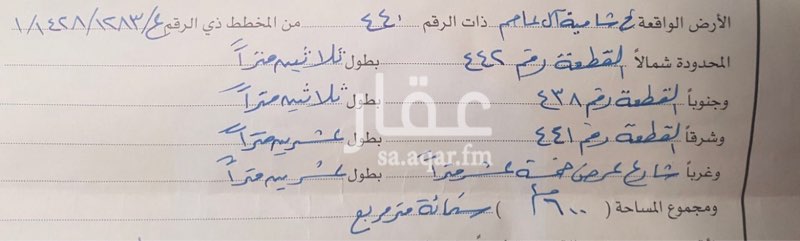 الأرض الواقعة في شامية آل عاصم ذات الرقم ٤٤٠ من المخطط ذي الرقم ع/١٢٨٣/١٤٢٨/١
المحدودة شمالاً القطعة رقم ٤٤٢ بطول ثلاثين متراً
وجنوباً القطعة رقم ٤٣٨ بطول ثلاثين متراً
وشرقاً القطعة رقم ٤٤١ بطول عشرين متراً
وغرباً شارع عرض خمسة عشر متراً بطول عشرين متراً
ومجموع المساحة ( ٦٠٠م٢ ) ستمائة متر مربع
عقار
sa.aqar.fm